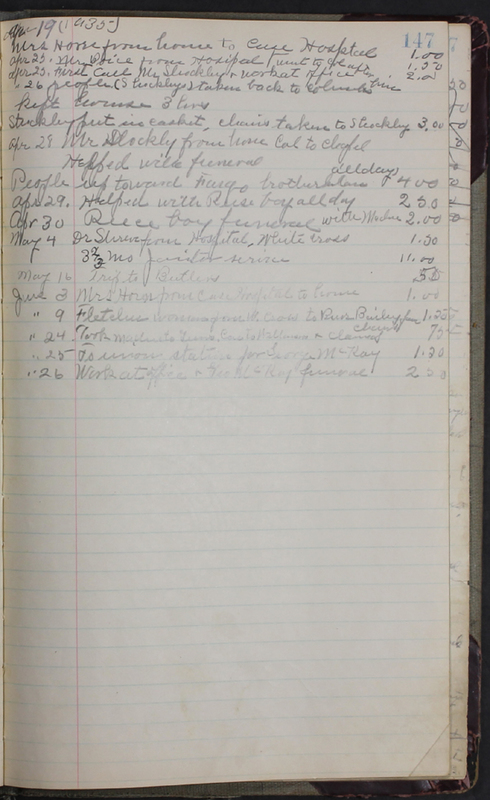 Apr 19 (1935) 147
Mrs Horn from home to Case Hospital 1.00
Apr 23. Mr Price from Hospital, went to 1.50
Apr 25. First Call Mr Stuckley & work at office 2.00
" 26 people (Stuckleys) taken back to Columbus
kept 3
Stuckley put in casket, chairs taken to Stuckley 3.00
Apr 29 Mr Stockly from home Cal to Chapel
Helped with funeral all day
People up toward brother 4 00
Apr 29. Helped with Reese boy all day 2 50
Apr 30 Reece boy funeral with 2.00
May 4 Dr Shrive from Hospital, White Cross 1.50
3 2/3 Mo Janitor service 11.00
May 16 Trip to Butlers 50
June 3 Mrs Horn from Case Hospital to home 1.00
" 9 Fletcher woman from W. Cross to Park Burlington 1.25
" 24 Took & cleaning 75
" 25 To union station for George McKay 1.50
" 26 Work at office & McKay funeral 2 50